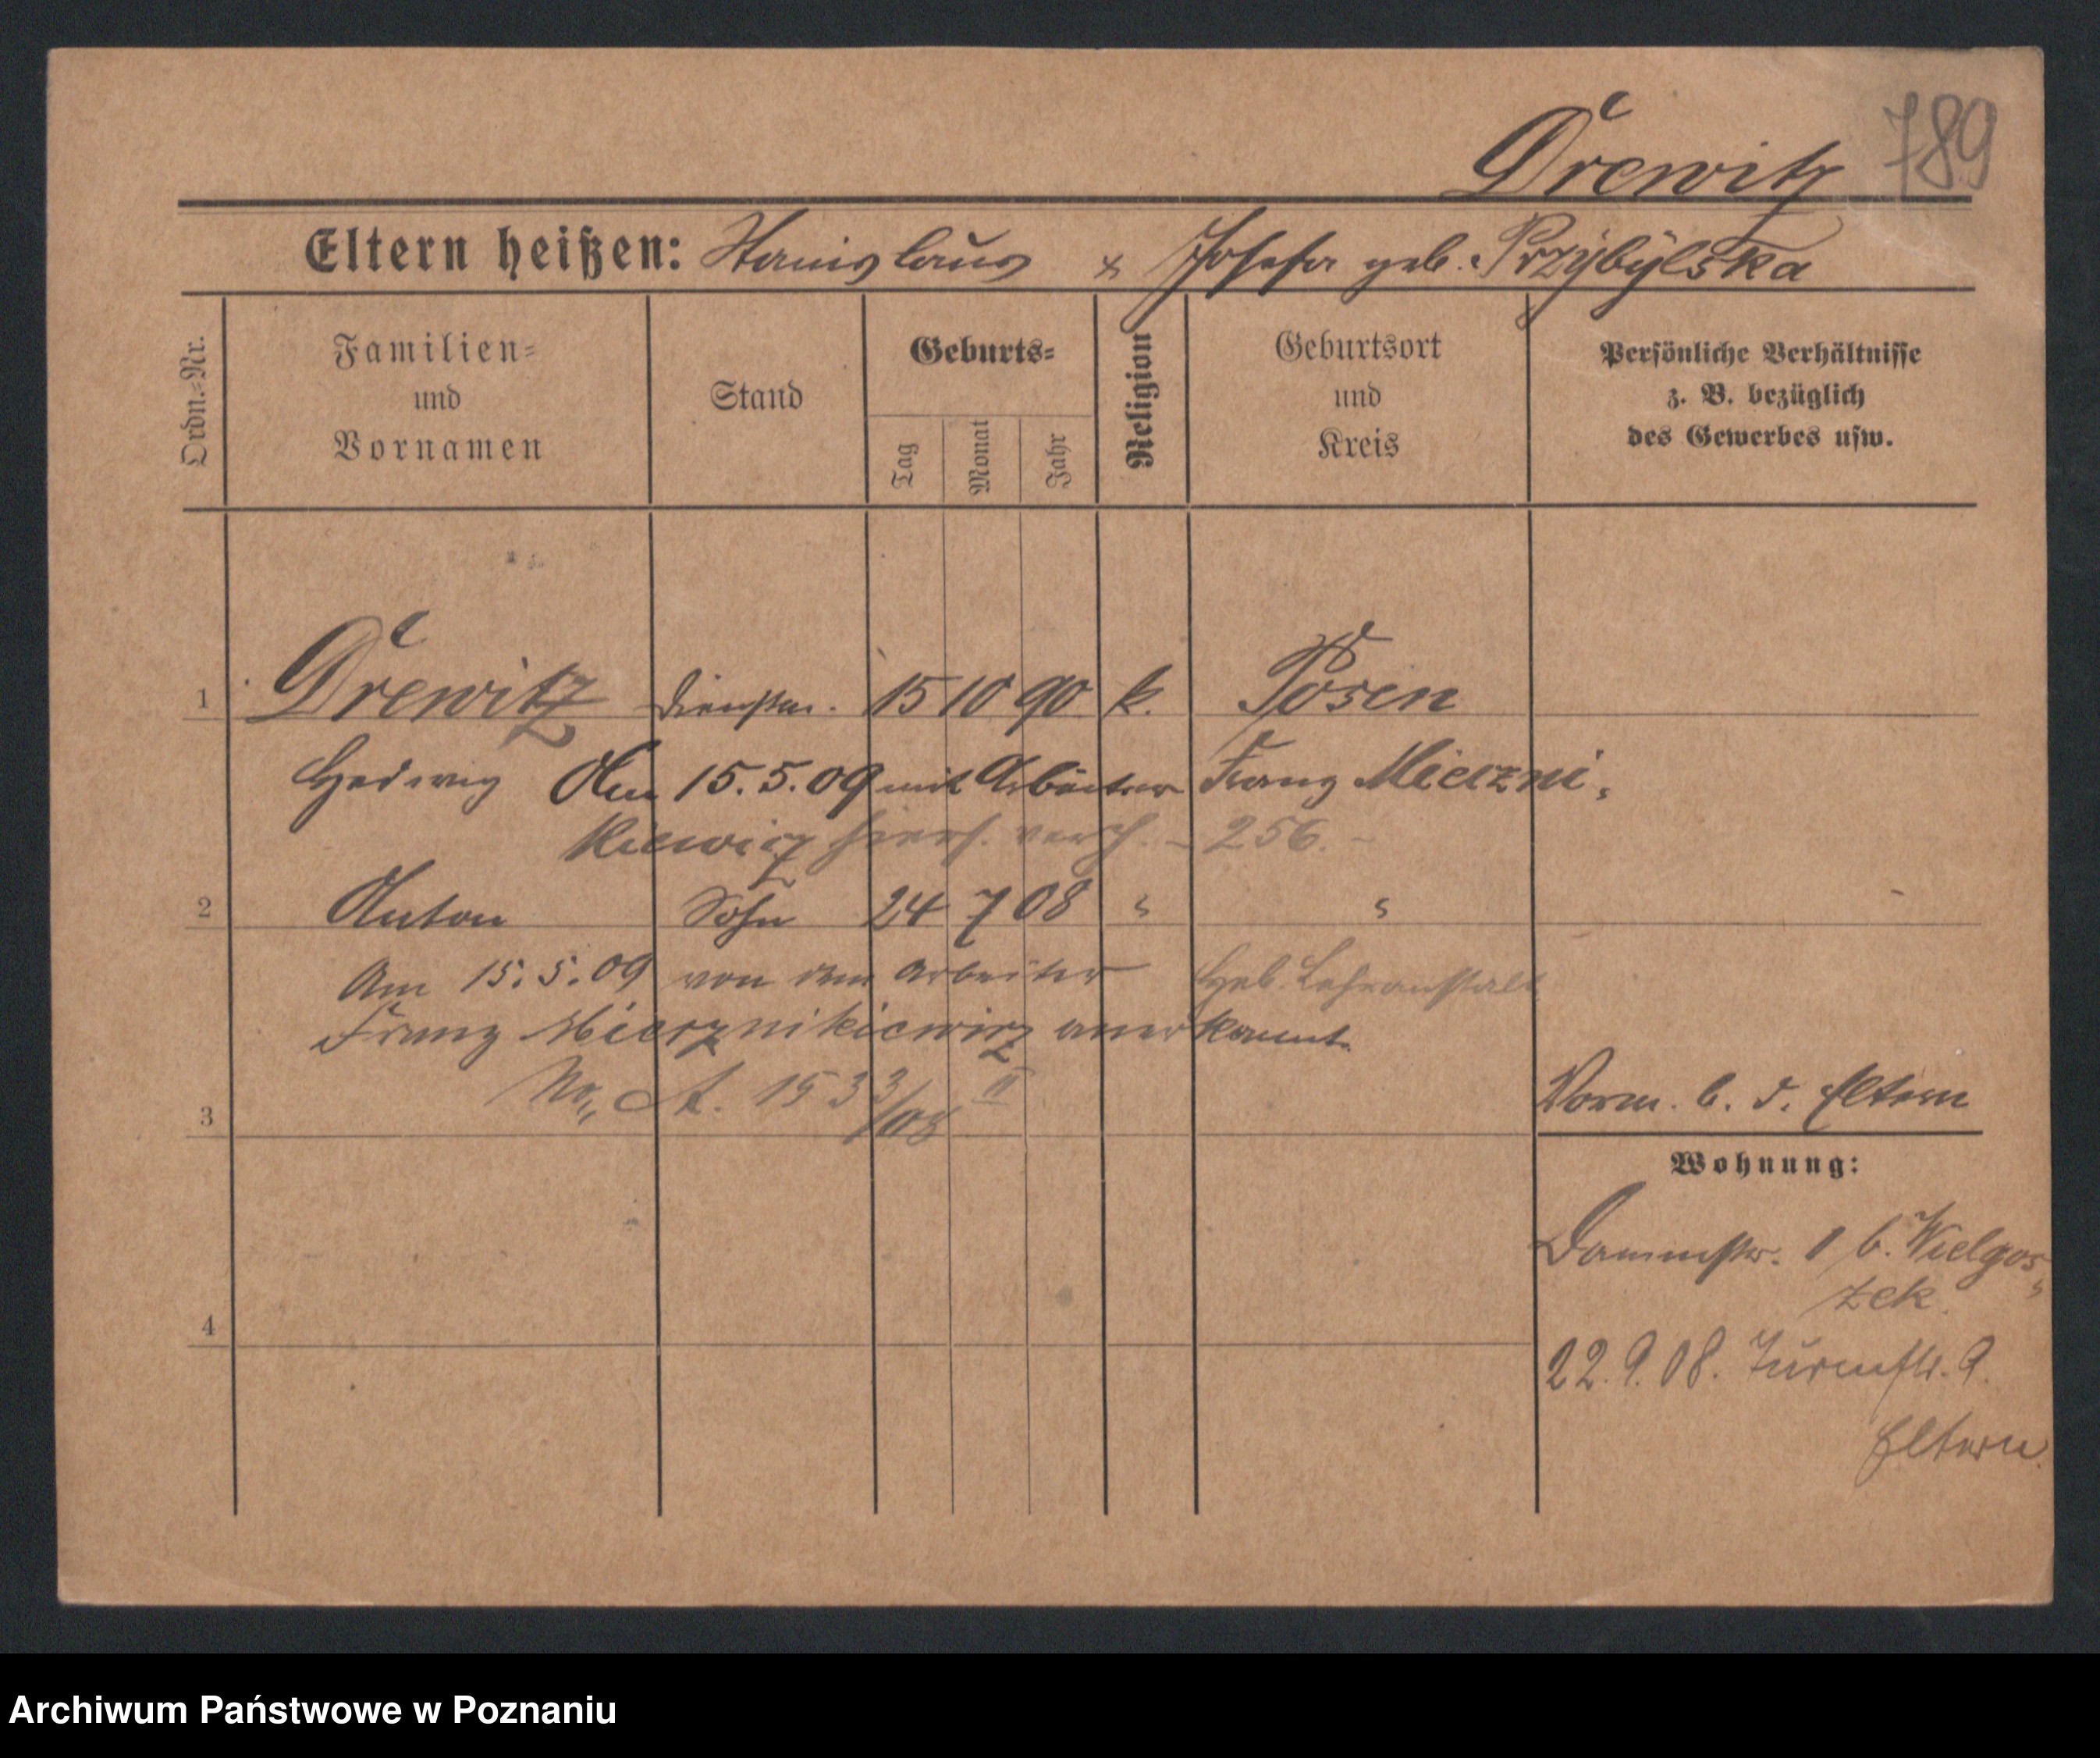 Drewitz 789
Eltern heißen: Stanislaus & Josefa geb. Przybylska
Ordn.-Nr.
Familien-
und
Vornamen
Stand
Geburts-
Tag
Monat
Jahr
Religion
Geburtsort
und
Kreis
Persönliche Verhältnisse
z. B. bezüglich
des Gewerbes usw.
1 Drewitz Dienstm. 15 10 90 k. Posen
Hedwig Am 15.5.09 mit Arbeiter Franz Mierzni-
kiewicz hiers. verh. - 256. -
2 Anton Sohn 24 7 08 " "
Am 15.5.09 von dem Arbeiter Heb. Lehranstalt
Franz Mierznikiewicz anerkannt.
A. 1533/08 II
3
Vorm. b. d. Eltern
Wohnung:
Dammstr. 1 b. Wielgos-
zek.
4
22.9.08. Turmstr. 9.
Eltern.
Archiwum Państwowe w Poznaniu